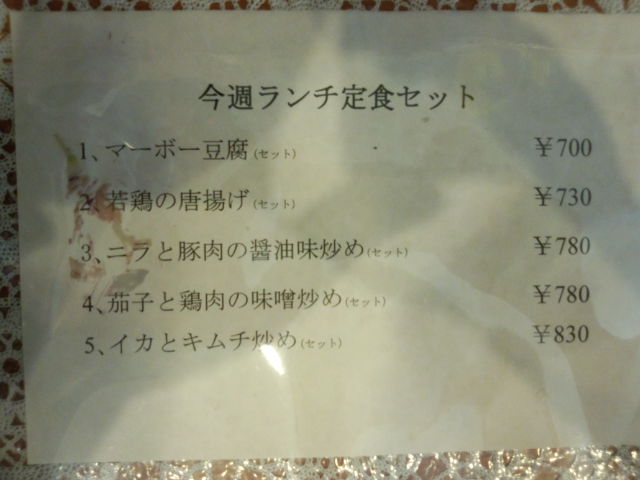 今週ランチ定食セット
1、マーボー豆腐(セット) ￥700
2、若鶏の唐揚げ(セット) ￥730
3、ニラと豚肉の醤油味炒め(セット) ￥780
4、茄子と鶏肉の味噌炒め(セット) ￥780
5、イカとキムチ炒め(セット) ￥830